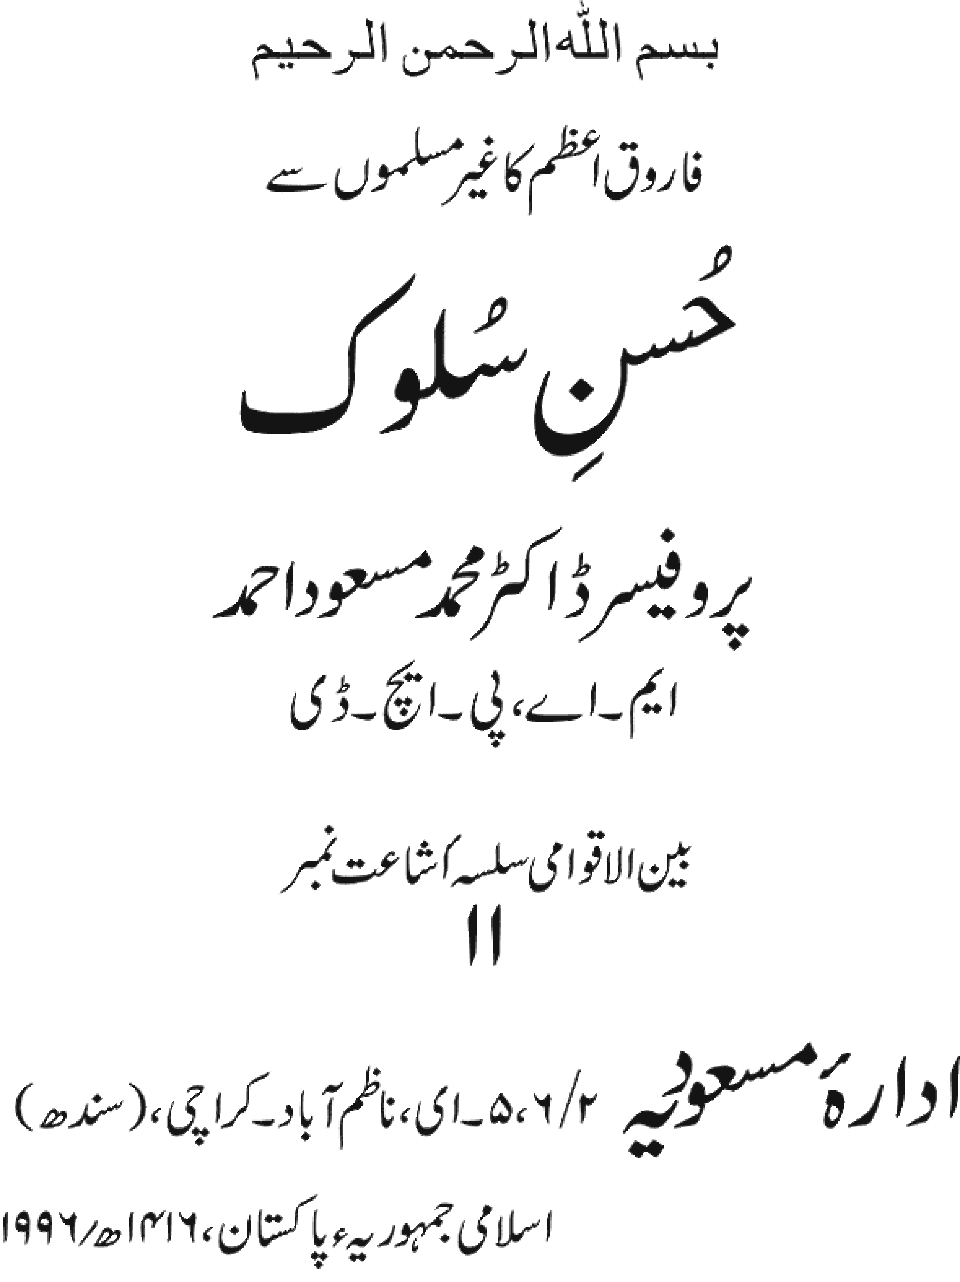 بسم الله الرحمن الرحیم
فاروق اعظم کا غیر مسلموں سے
حُسنِ سُلوک
پروفیسر ڈاکٹر محمد مسعود احمد
ایم۔اے، پی۔ایچ۔ڈی
بین الاقوامی سلسہ أشاعت نمبر
۱۱
ادارۂ مسعودیہ ۶/۲، ۵۔ای، ناظم آباد۔کراچی، (سندھ)
اسلامی جمہوریہء پاکستان، ۱۴۱۶ھ/۱۹۹۶